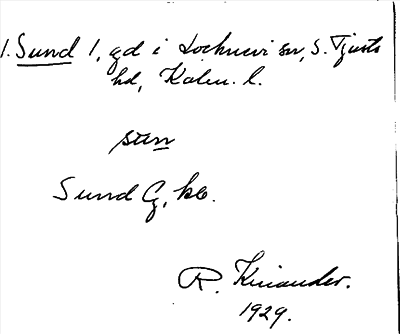 1. Sund 1, gd i Locknevi sn, S. Tjusts
hd, Kalm. l.
sun
Sund G, kb.
R. Kinander.
1929.